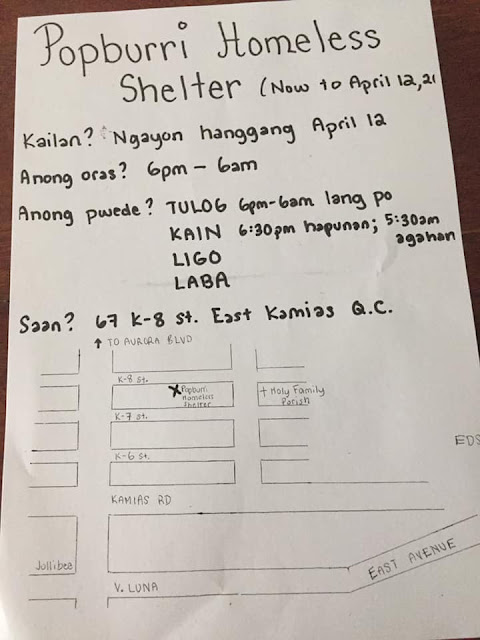 Popburri Homeless
Shelter (Now to April 12, 2
Kailan? Ngayon hanggang April 12
Anong oras? 6pm – 6am
Anong pwede? TULOG 6pm-6am lang po
KAIN 6:30pm hapunan; 5:30am
agahan
LIGO
LABA
Saan? 67 K-8 St. East Kamias Q.C.
↑ TO AURORA BLVD
K-8 St.
X Popburri
Homeless
Shelter
+ Holy Family
Parish
K-7 St.
K-6 St.
EDS
KAMIAS RD
Jollibee
EAST AVENUE
V. LUNA